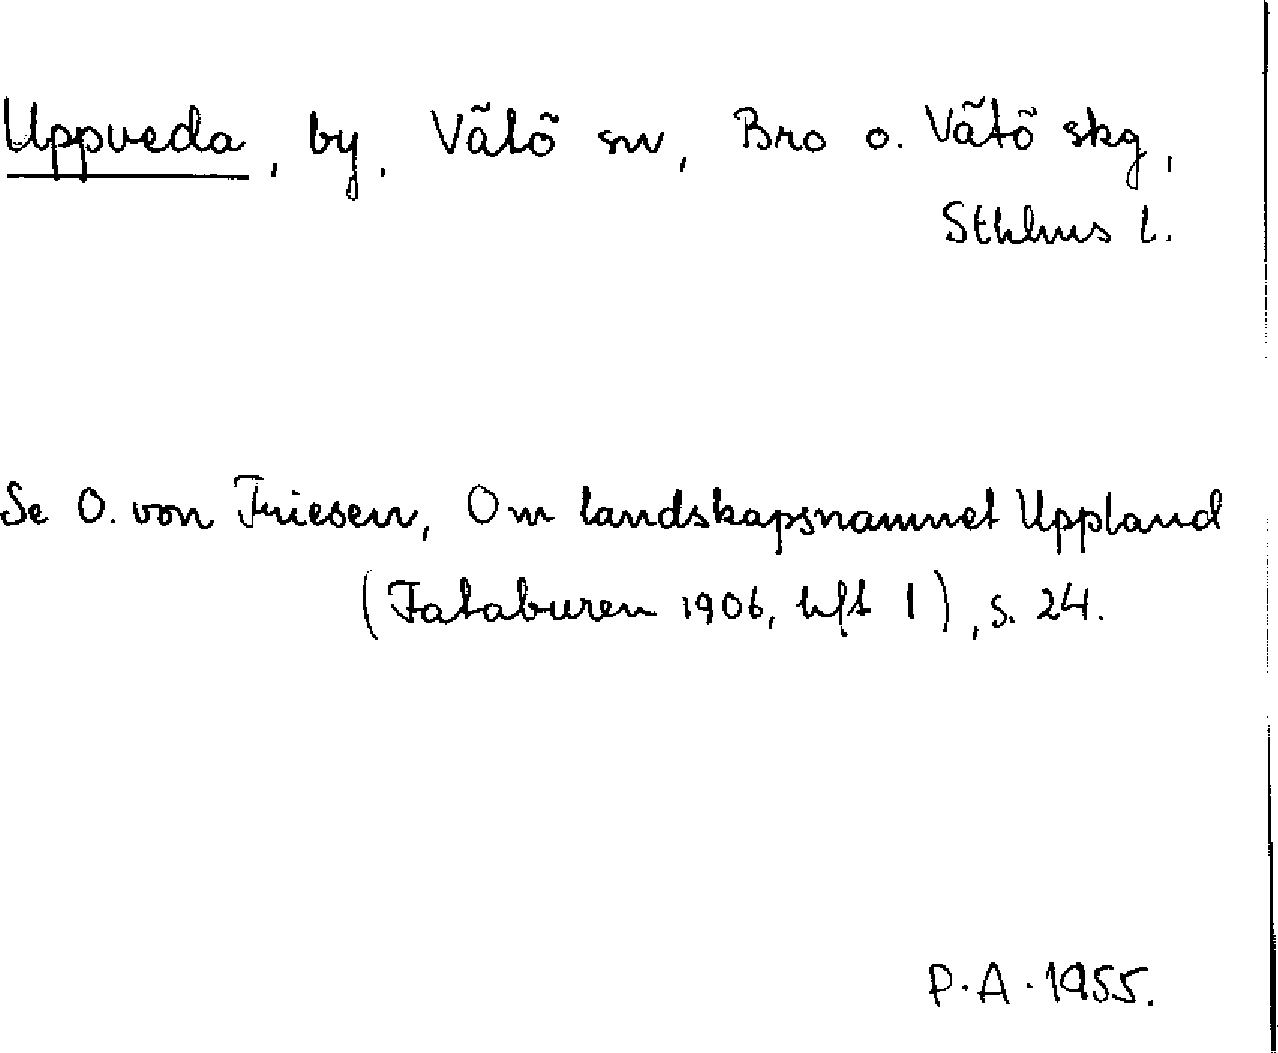 Uppveda, by, Vätö sn, Bro o. Vätö skg,
Sthlms l.
Se O. von Friesen, Om landskapsnamnet Uppland
(Fataburen 1906, hft 1), s. 24.
P.A. 1955.